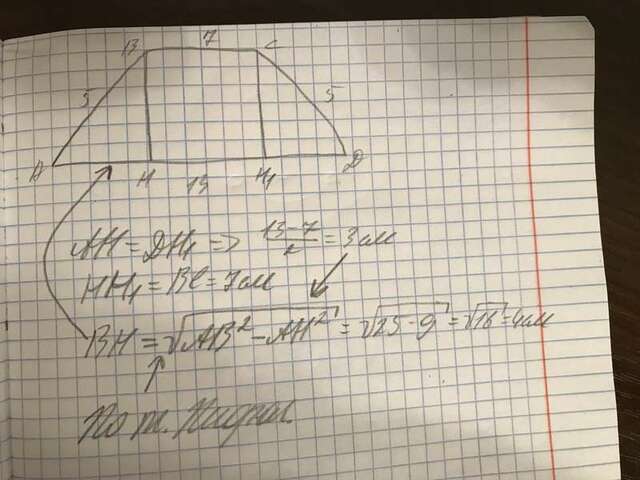 B 7 C
5 5
A H 13 H₁ D
AH = DH₁ => 13-7/2 = 3 см
HH₁ = BC = 7 см
BH = √AB² - AH² = √25 - 9 = √16 = 4 см
По т. Пифагора